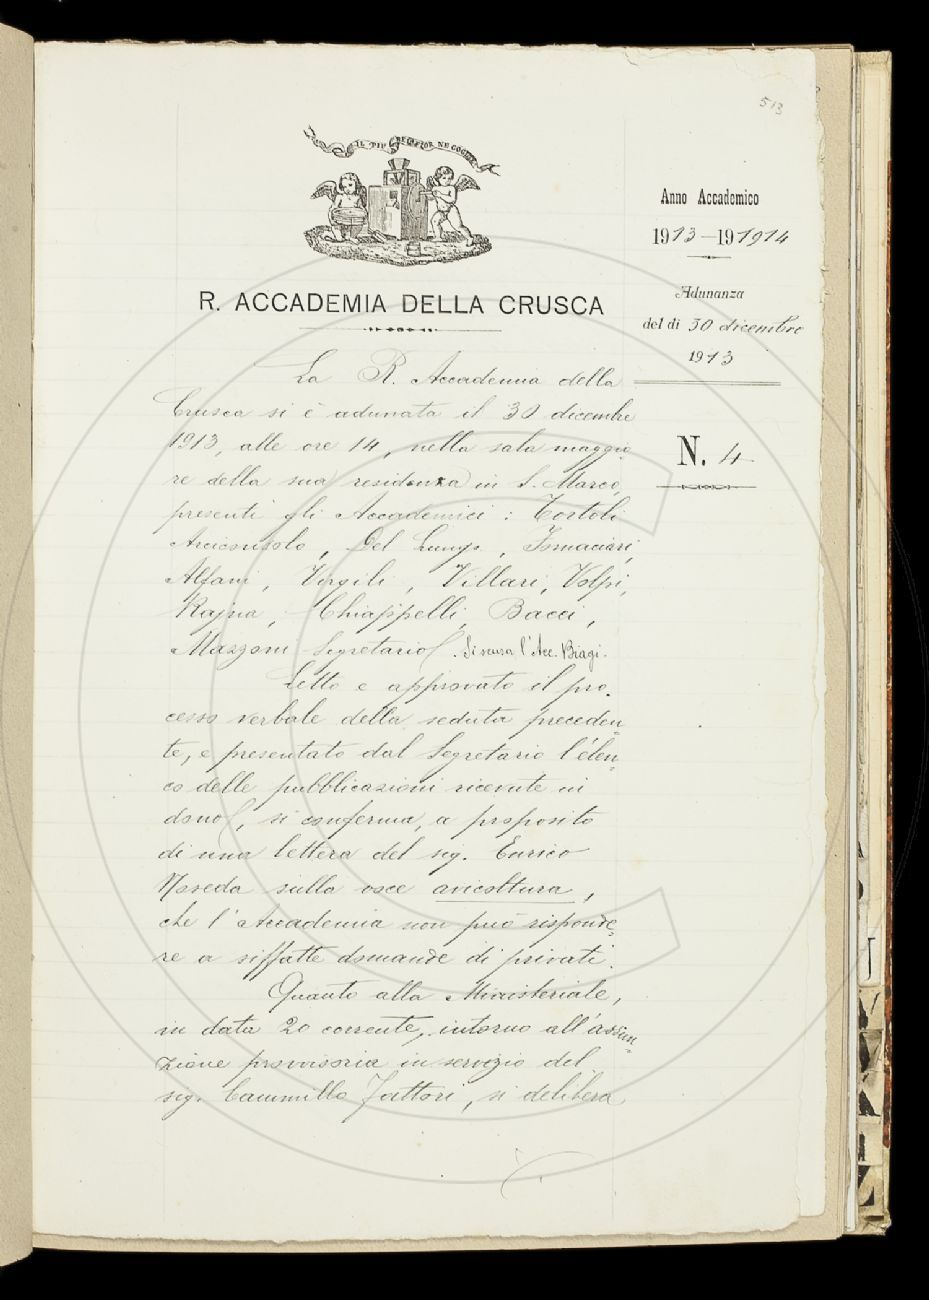 513
IL PIÙ BEL FIOR NE COGLIE
Anno Accademico
1913-191914
Adunanza
del di 30 dicembre
1913
N. 4
R. ACCADEMIA DELLA CRUSCA
La R. Accademia della
Crusca si è adunata il 30 dicembre
1913, alle ore 14, nella sala maggio
re della sua residenza in S. Marco,
presenti gli Accademici: Tortoli
Arciconsolo, Del Lungo, Fornaciari,
Alfani, Virgili, Villari, Volpi,
Rajna, Chiappelli, Bacci,
Mazzoni Segretario. Si scusa l'Acc. Biagi.
Letto e approvato il pro-
cesso verbale della seduta preceden-
te, e presentato dal Segretario l'elen-
co delle pubblicazioni ricevute in
dono, si conferma, a proposito
di una lettera del sig. Enrico
Noseda sulla voce avicoltura,
che l'Accademia non può risponde-
re a siffatte domande di privati.
Quanto alla Ministeriale,
in data 20 corrente, intorno all'assun-
zione provvisoria in servizio del
sig. Cammillo Fattori, si delibera